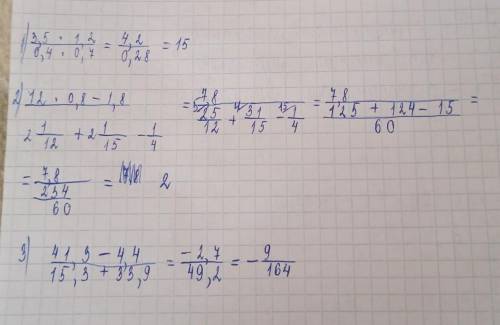 1) 3,5 · 1,2 / 0,4 · 0,7 = 4,2 / 0,28 = 15
2) 12 · 0,8 - 1,8 / 2 1/12 + 2 1/15 - 1/4 = 7,8 / 25/12 + 31/15 - 1/4 = 7,8 / 125 + 124 - 15 / 60 =
= 7,8 / 234 / 60 = 2
3) 41,3 - 4,4 / 15,3 + 33,9 = -2,7 / 49,2 = - 9 / 164